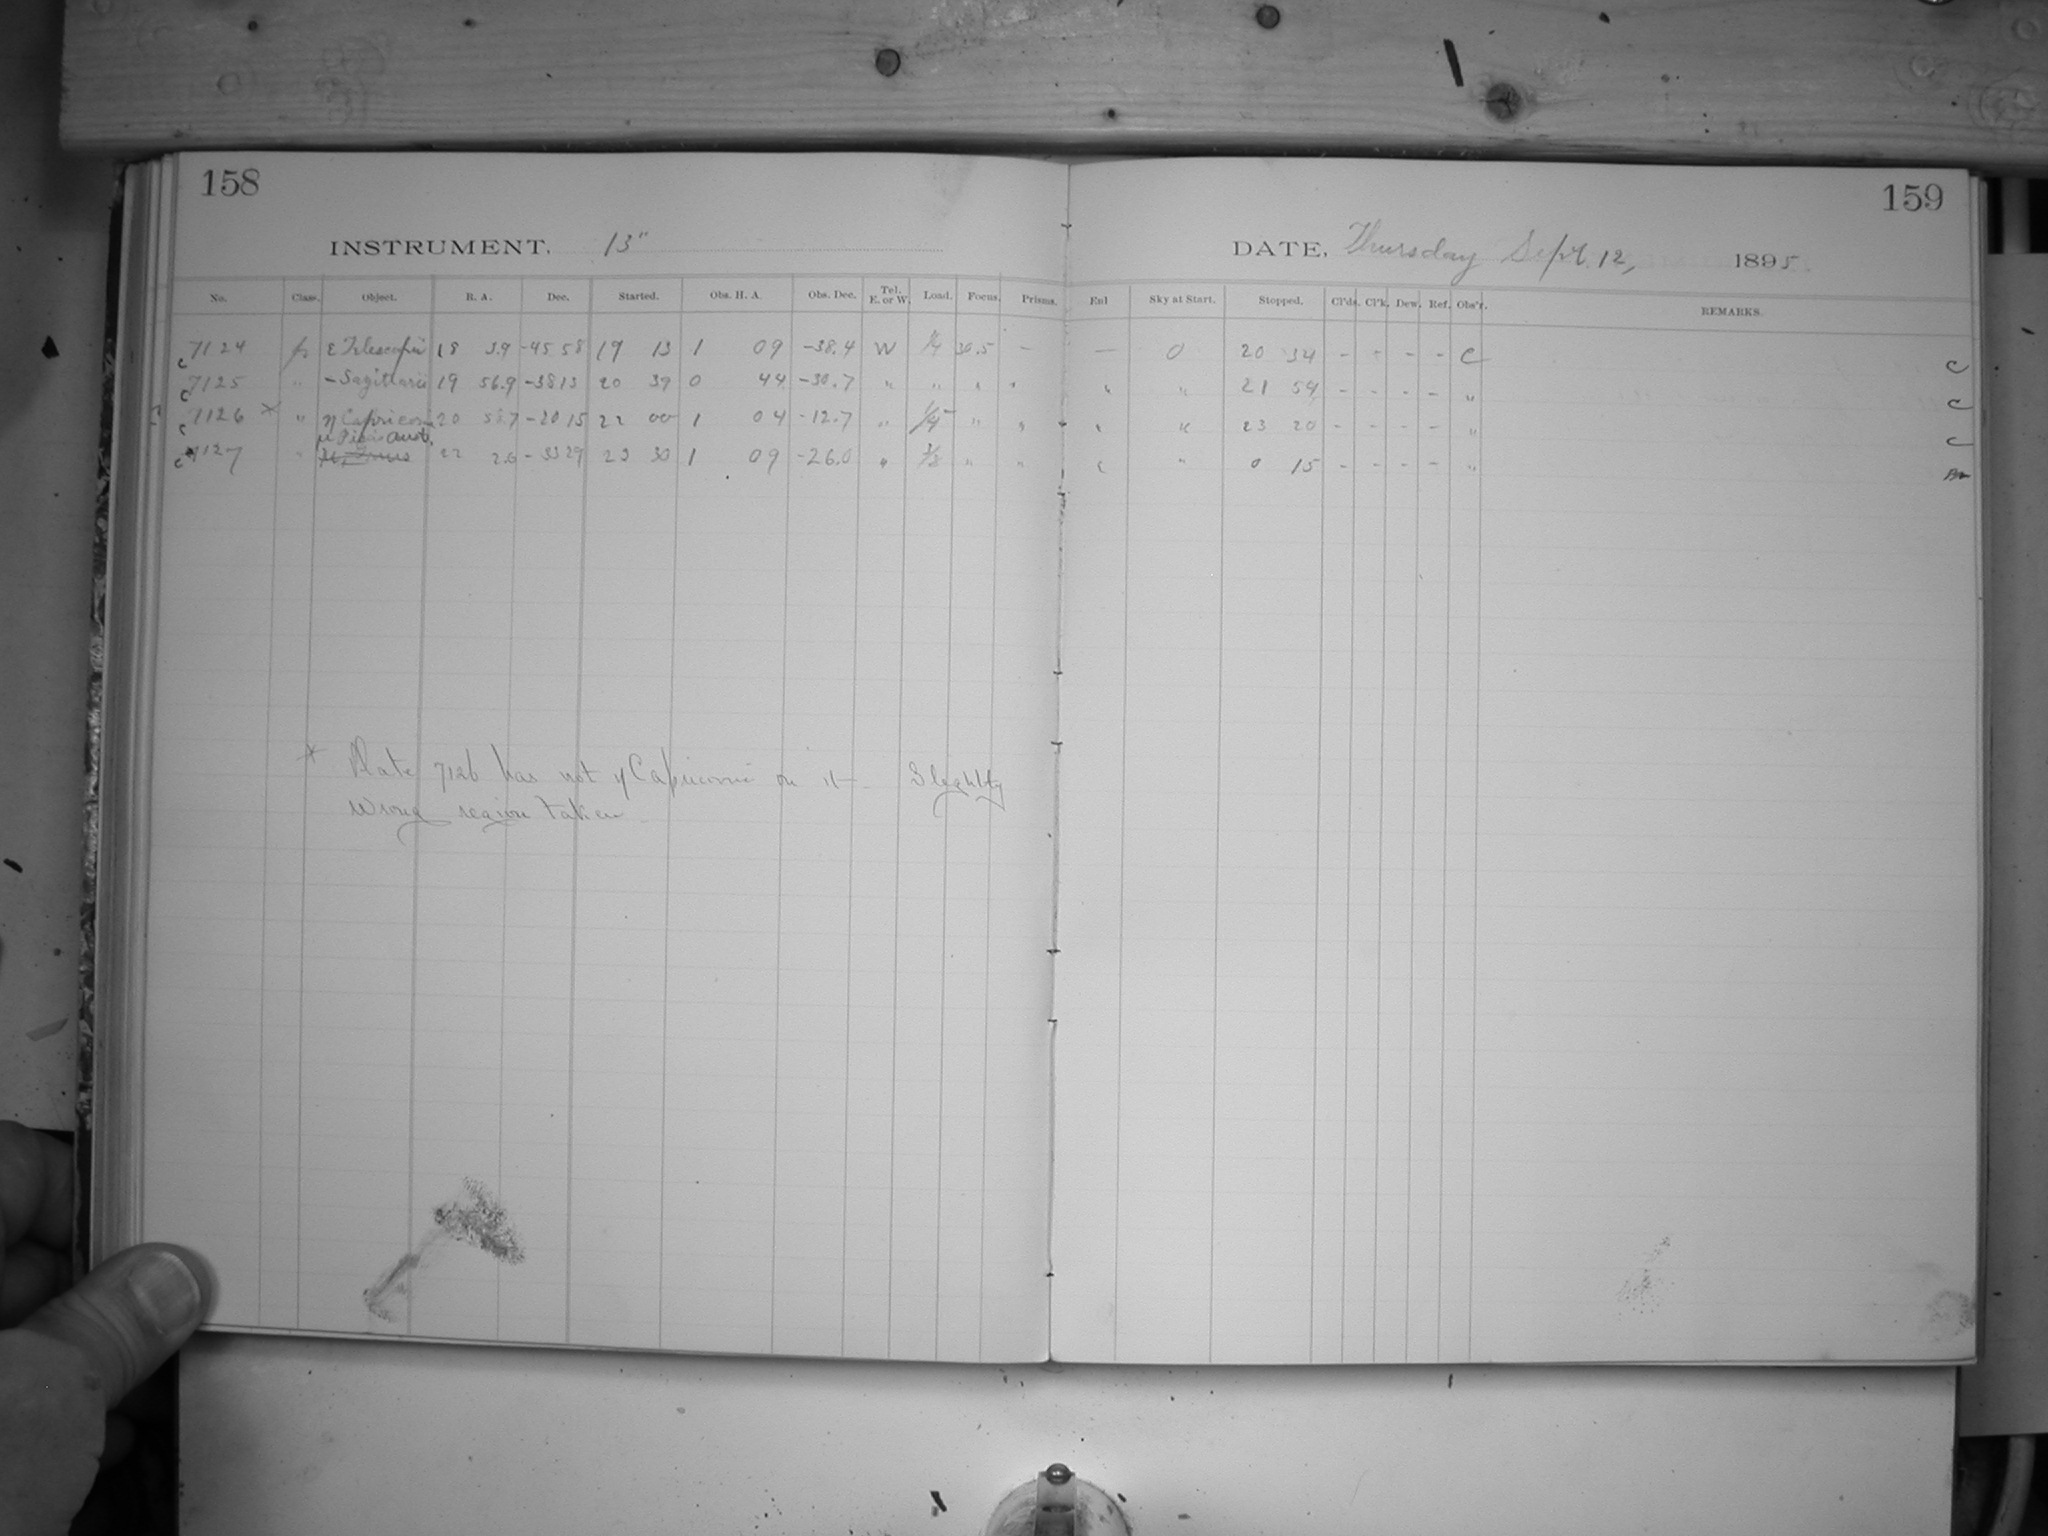 158
INSTRUMENT. 13"
No. Class. Object. R. A. Dec. Started. Obs. H. A. Obs. Dec. Tel. E. or W. Load. Focus. Prisms.
c 7124 p ε Telescopii 18 3.9 -45 58 19 13 1 09 -38.4 W 1/4 30.5 -
c 7125 " - Sagittarii 19 56.9 -38 13 20 39 0 44 -30.7 " " " "
c 7126 * " η Capricorni 20 58.7 -20 15 22 00 1 04 -12.7 " 1/4 " "
μ Piscis Aust.
c 7127 " 22 2.6 -33 29 23 30 1 09 -26.0 " " "
* Plate 7126 has not η Capricorni on it - Slightly
wrong region taken
159
DATE, Thursday Sept. 12, 1895
Enl Sky at Start. Stopped. Cl'ds. Cl'k. Dew. Ref. Obs'r. REMARKS.
— 0 20 34 - - - - C c
" " 21 54 - - - - " c
" " 23 20 - - - - " c
" " 0 15 - - - - "